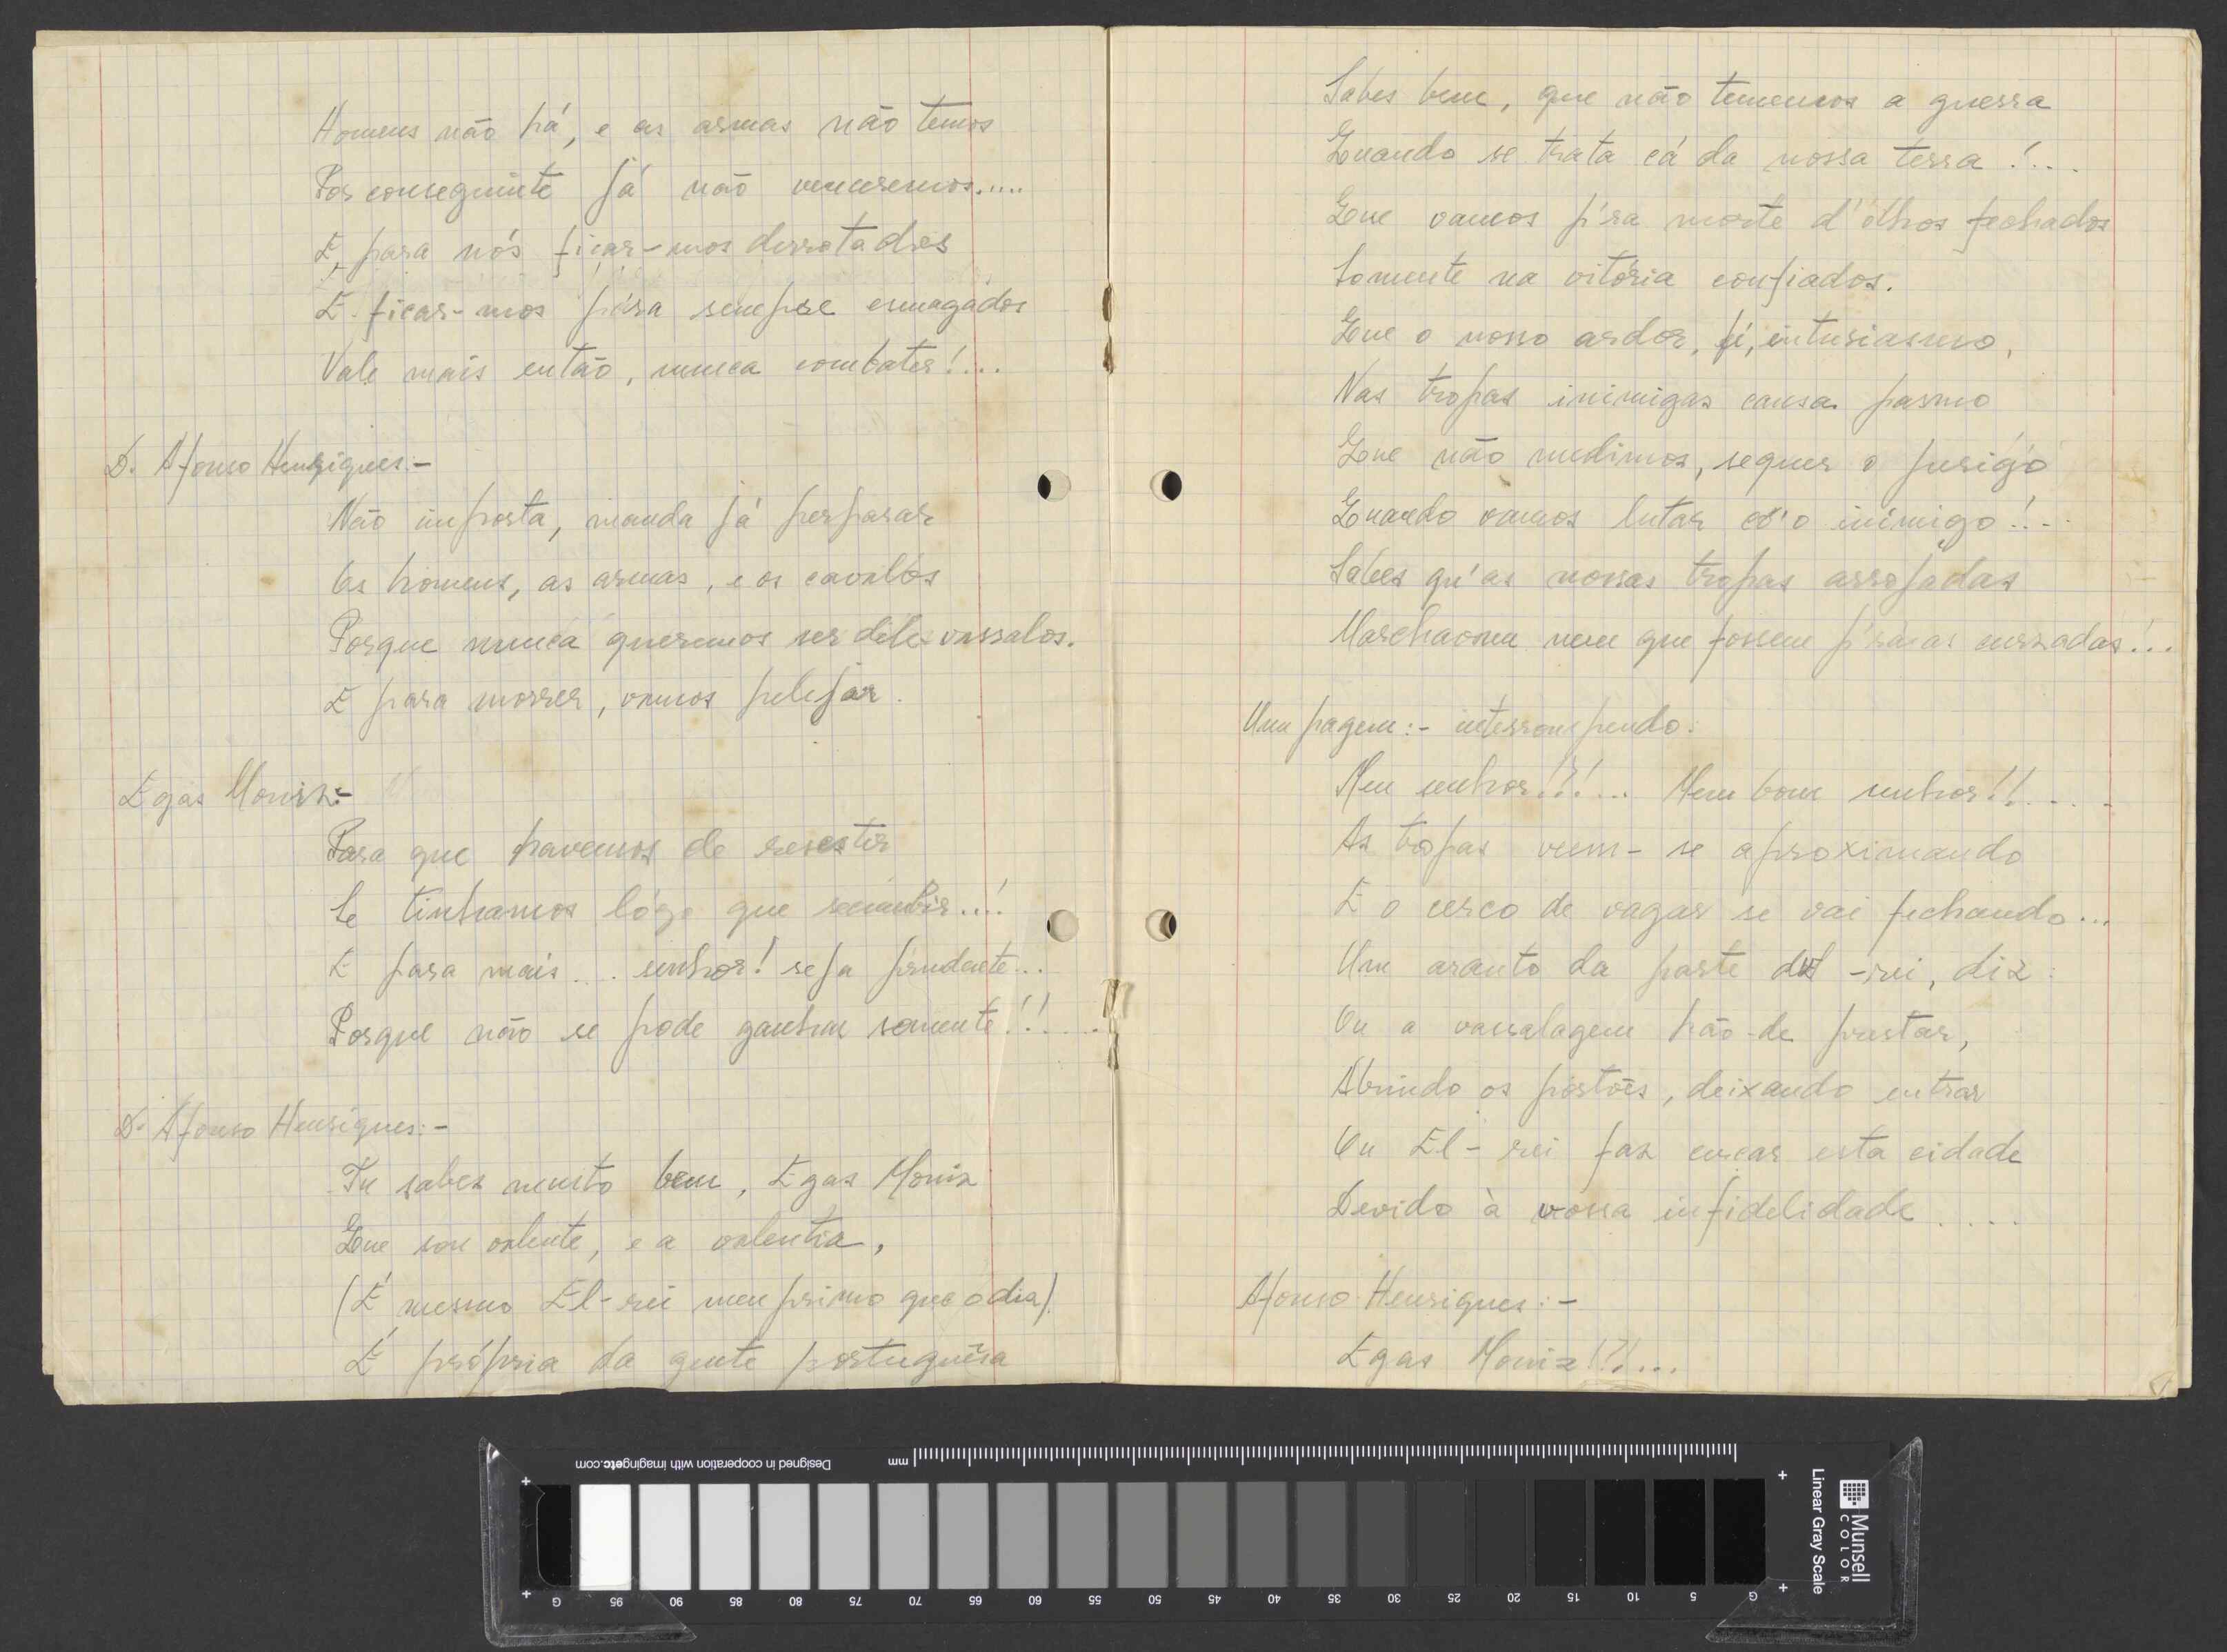 Homens não há, e as armas não temos
Por conseguinte já não venceremos.....
E, para nós ficar-mos derrotados
E ficar-mos p'ra sempre esmagados
Vale mais então, nunca combater!...
D. Afonso Henriques:-
Não importa, manda já perparar
Os homens, as armas, e os cavalos
Porque nunca queremos ser dêle vassalos.
E para morrer, vamos pelejar.
Egas Moniz:-
Para que havemos de resestir
Se tinhamos lógo que sucumbir...!
E para mais.... senhor! seja prudente...
Porque não se pode ganhar somente!!....
D. Afonso Henriques:-
Tu sabes muito bem, Egas Moniz
Que sou valente, e a valentia,
(É mesmo El-rei meu primo que o dia).
É própria da gente portuguêsa
Sabes bem, que não tememos a guerra
Quando se trata cá da nossa terra!...
Que vamos p'ra morte d'ólhos fechados
Somente na vitória confiados.
Que o nosso ardor, fé, intusiasmo,
Nas tropas inimigas causa pasmo
Que não medimos, sequer o perigo
Quando vamos lutar co'o inimigo!...
Sabes qu'as nossas tropas arrojadas
Marchavam nem que fossem p'ra as cruzadas!...
Um pagem:- interrompendo:
Meu senhor!?!... Meu bom senhor!!.....
As tropas veem-se aproximando
E o cerco de vagar se vai fechando...
Um arauto da parte del-rei, diz:
Ou a vassalagem hão-de prestar,
Abrindo os portões, deixando entrar
Ou El-rei faz cercar esta cidade
Devido à vossa infidelidade.....
Afonso Henriques:-
Egas Moniz!?!...
Designed in cooperation with imagingetc.com
mm
Munsell
COLOR
Linear Gray Scale
G 95 90 85 80 75 70 65 60 55 50 45 40 35 30 25 20 15 10 5 G